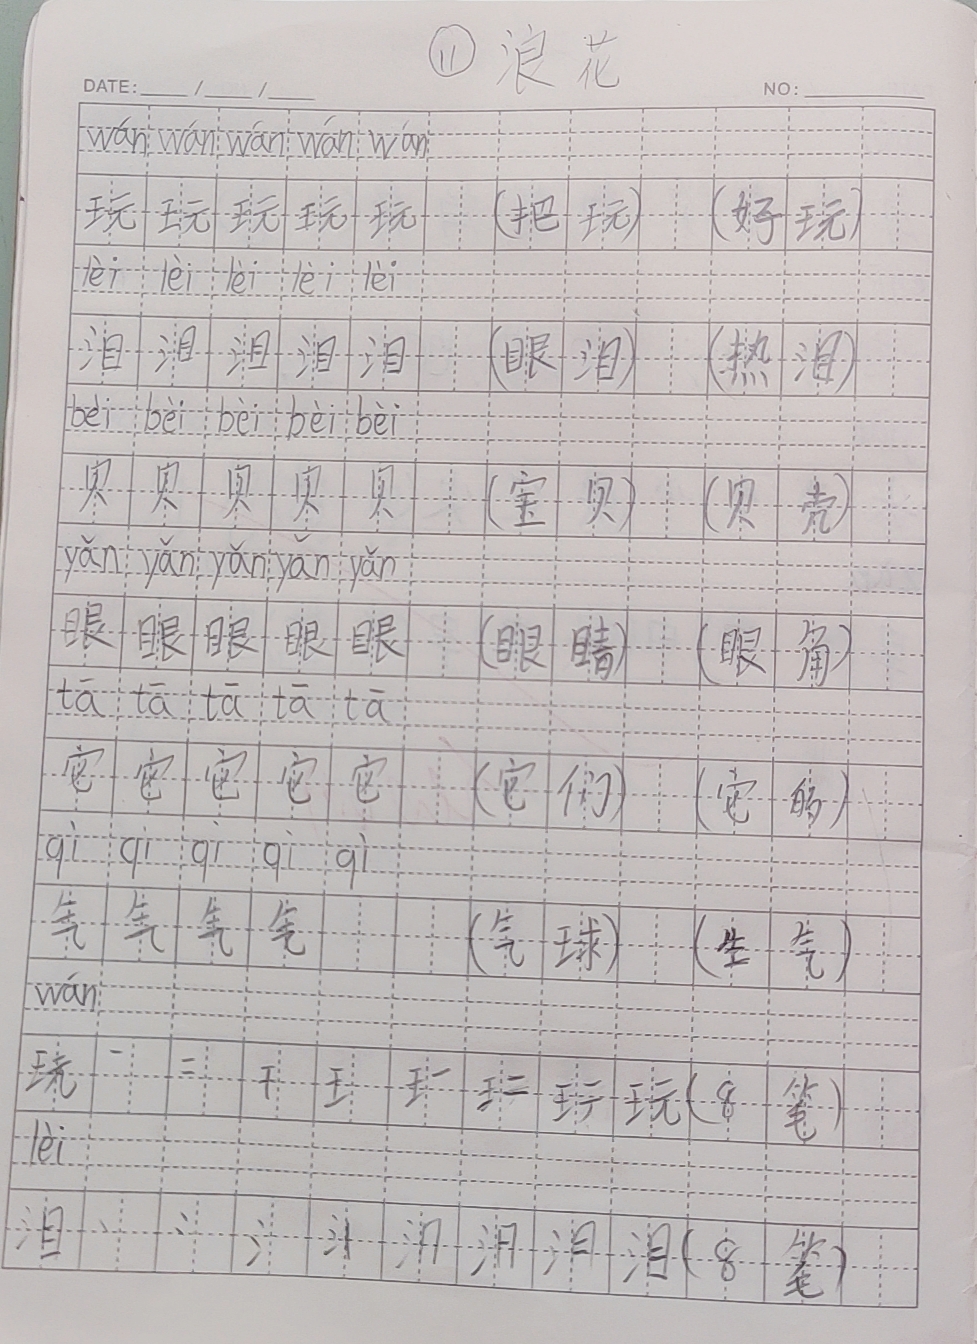 ⑪ 浪花
DATE: ____ / ____ / ____ NO: ____________
wán wán wán wán wán
玩 玩 玩 玩 玩 (把 玩) (好 玩)
lèi lèi lèi lèi lèi
泪 泪 泪 泪 泪 (眼 泪) (热 泪)
bèi bèi bèi bèi bèi
贝 贝 贝 贝 贝 (宝 贝) (贝 壳)
yǎn yǎn yǎn yǎn yǎn
眼 眼 眼 眼 眼 (眼 睛) (眼 角)
tā tā tā tā tā
它 它 它 它 它 (它 们) (它 的)
qì qì qì qì qì
气 气 气 气 (气 球) (生 气)
wán
玩 一 二 干 王 玩 (8 笔)
lèi
泪 丶 冫 氵 泪 (8 笔)